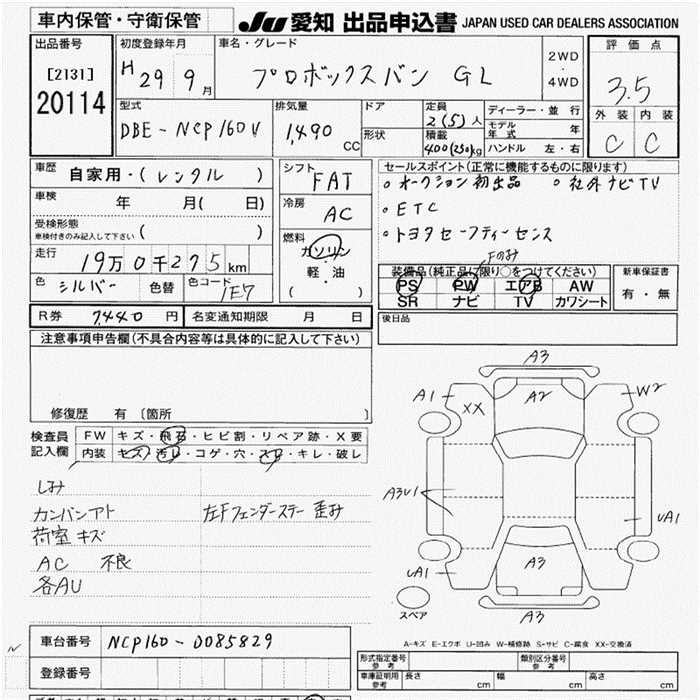 車内保管・守衛保管
JU 愛知 出品申込書 JAPAN USED CAR DEALERS ASSOCIATION
出品番号
[2131]
20114
初度登録年月
H 29 9 月
車名・グレード
プロボックスバン GL
2WD
・
4WD
評価点
3.5
外装 内装
C C
型式
DBE-NCP160V
排気量
1,490 CC
ドア
形状
定員
2(5)人
積載
400(250)kg
ディーラー・並行
モデル年式 年
ハンドル 左・右
車歴
自家用・(レンタル)
車検 年 月( 日)
受検形態
車検付きのみ記入して下さい ( )
走行
19万0千275km
色 シルバー 色替 色コード 1E7
シフト
FAT
冷房
AC
燃料
ガソリン
軽・油
( )
セールスポイント(正常に機能するものに限ります)
・オークション初出品 ・社外ナビTV
・ETC
・トヨタセーフティーセンス
Fのみ
装備品(純正品に限り○をつけてください)
PS PW エアB AW
SR ナビ TV カワシート
新車保証書
有・無
R券 7,440 円 名変通知期限 月 日
後日品
注意事項申告欄(不具合内容等は具体的に記入して下さい)
修復歴 有 〔箇所 〕
検査員記入欄
FW キズ・飛石・ヒビ割・リペア跡・X要
内装 キズ・汚レ・コゲ・穴・スレ・キレ・破レ
しみ
カンバンアト 左Fフェンダーステー 歪み
荷室 キズ
AC 不良
各AU
A3
A1 XX A2 W2
A3U1
UA1
UA1 A3
スペア A3
A-キズ E-エクボ U-凹み W-補修跡 S-サビ C-腐食 XX-交換済
車台番号 NCP160-0085829
登録番号
形式指定番号 参考 類別区分番号 参考
車庫証明用 参考 長さ cm 幅 cm 高さ cm